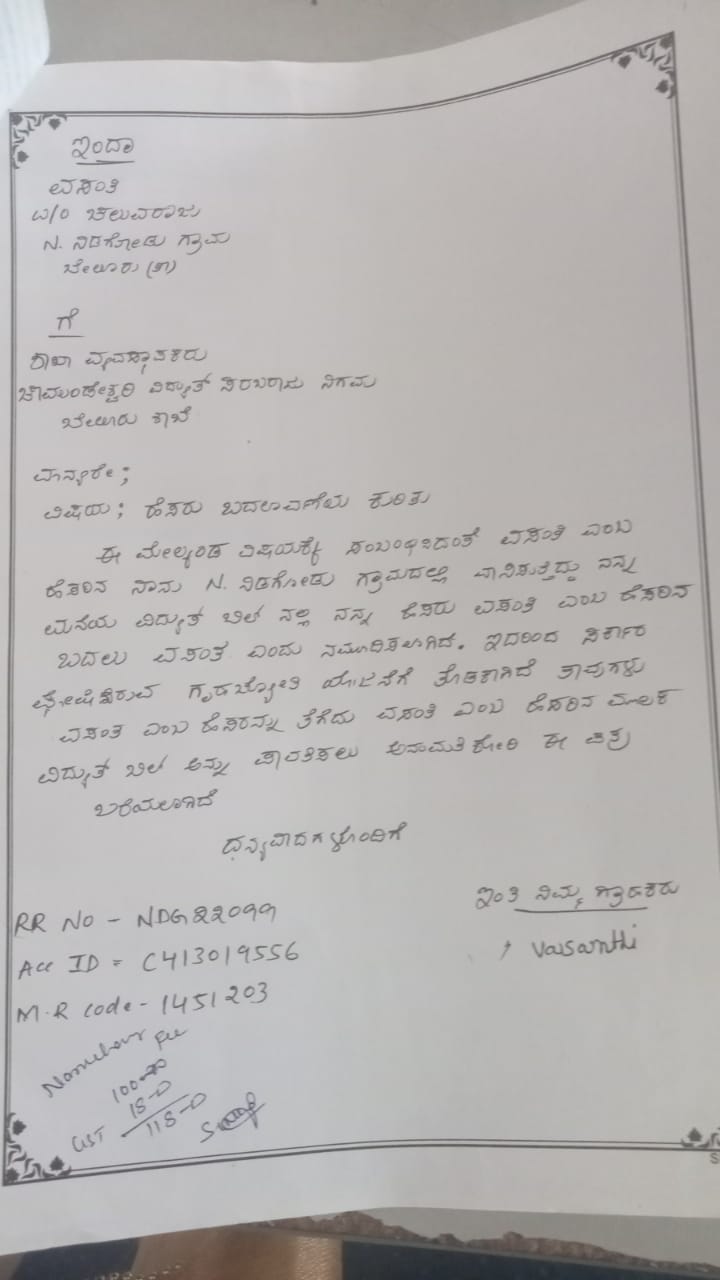 ಇಂದಾ
ವಸಂತಿ
W/O ಚಲುವರಾಜು
N. ನಿಡಗೋಡು ಗ್ರಾಮ
ಬೇಲೂರು (ತಾ)
ಗೆ
ಶಾಖಾ ವ್ಯವಸ್ಥಾಪಕರು
ಚಾಮುಂಡೇಶ್ವರಿ ವಿದ್ಯುತ್ ಸರಬರಾಜು ನಿಗಮ
ಬೇಲೂರು ಶಾಖೆ
ಮಾನ್ಯರೇ;
ವಿಷಯ; ಹೆಸರು ಬದಲಾವಣೆಯ ಕುರಿತು
ಈ ಮೇಲ್ಕಂಡ ವಿಷಯಕ್ಕೆ ಸಂಬಂಧಿಸಿದಂತೆ ವಸಂತಿ ಎಂಬ
ಹೆಸರಿನ ನಾನು N. ನಿಡಗೋಡು ಗ್ರಾಮದಲ್ಲಿ ವಾಸಿಸುತ್ತಿದ್ದು ನನ್ನ
ಮನೆಯ ವಿದ್ಯುತ್ ಬಿಲ್ ನಲ್ಲಿ ನನ್ನ ಹೆಸರು ವಸಂತಿ ಎಂಬ ಹೆಸರಿನ
ಬದಲು ವಸಂತ ಎಂದು ನಮೂದಿಸಲಾಗಿದೆ. ಇದರಿಂದ ಸರ್ಕಾರ
ಘೋಷಿಸಿರುವ ಗೃಹಜ್ಯೋತಿ ಯೋಜನೆಗೆ ತೊಡಕಾಗಿದೆ ತಾವುಗಳು
ವಸಂತ ಎಂಬ ಹೆಸರನ್ನು ತೆಗೆದು ವಸಂತಿ ಎಂಬ ಹೆಸರಿನ ಮೂಲಕ
ವಿದ್ಯುತ್ ಬಿಲ್ ಅನ್ನು ಪಾವತಿಸಲು ಅನುಮತಿ ಕೋರಿ ಈ ಪತ್ರ
ಬರೆಯಲಾಗಿದೆ
ಧನ್ಯವಾದಗಳೊಂದಿಗೆ
ಇಂತಿ ನಿಮ್ಮ ಗ್ರಾಹಕರು
Vasanthi
RR No - NDG22099
Acc ID = C413019556
M.R code - 1451203
fee
100-00
18-0
GST 118-0